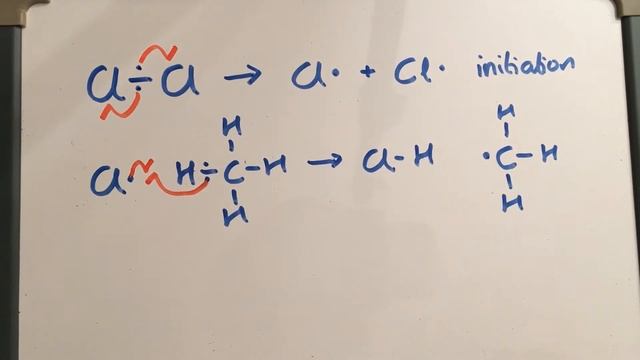 Cl÷Cl → Cl• + Cl• initiation
H H
Cl• H÷C-H → Cl-H •C-H
H H